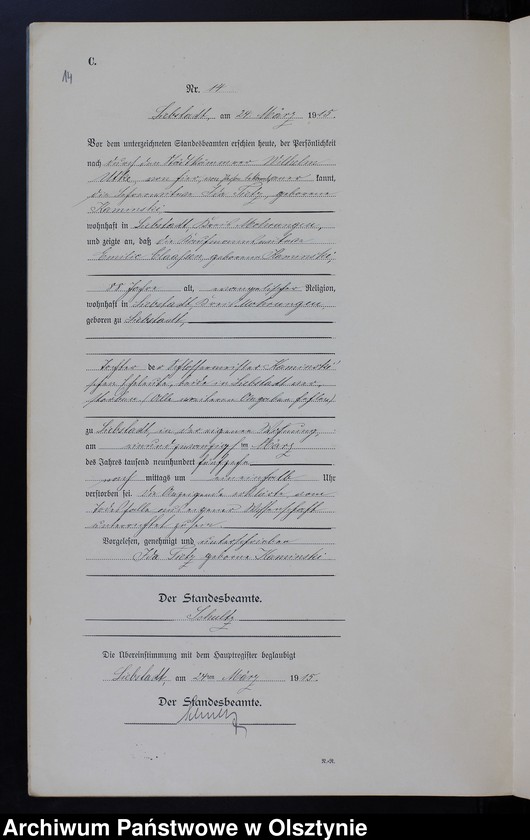 C.
14
Nr. 14
Liebstadt, am 24. März 1915.
Vor dem unterzeichneten Standesbeamten erschien heute, der Persönlichkeit
nach durch den Wilhelm
von hier, kannt,
die Ida Tietz, geborene
Kaminski
wohnhaft in Liebstadt, Kreis Mohrungen,
und zeigte an, daß die Kaufmannswitwe
Emilie Claassen, geborene Kaminski,
88 Jahre alt, evangelischer Religion,
wohnhaft in Liebstadt, Kreis Mohrungen
geboren zu Liebstadt,
Tochter der Schlossermeister Kaminski'
schen Eheleute, beide in Liebstadt ver-
storben (Alle weiteren Angaben fehlen)
zu Liebstadt, in der eigenen Wohnung,
am März
des Jahres tausend neunhundert fünfzehn
nach mittags um Uhr
verstorben sei. Die Anzeigende erklärte, vom
Todesfalle aus eigener Wissenschaft
unterrichtet zu sein.
Vorgelesen, genehmigt und unterschrieben
Ida Tietz geborene Kaminski
Der Standesbeamte.
Schultz
Die Übereinstimmung mit dem Hauptregister beglaubigt
Liebstadt, am 24ten März 1915.
Der Standesbeamte.
Schultz
R.-R.
Archiwum Państwowe w Olsztynie